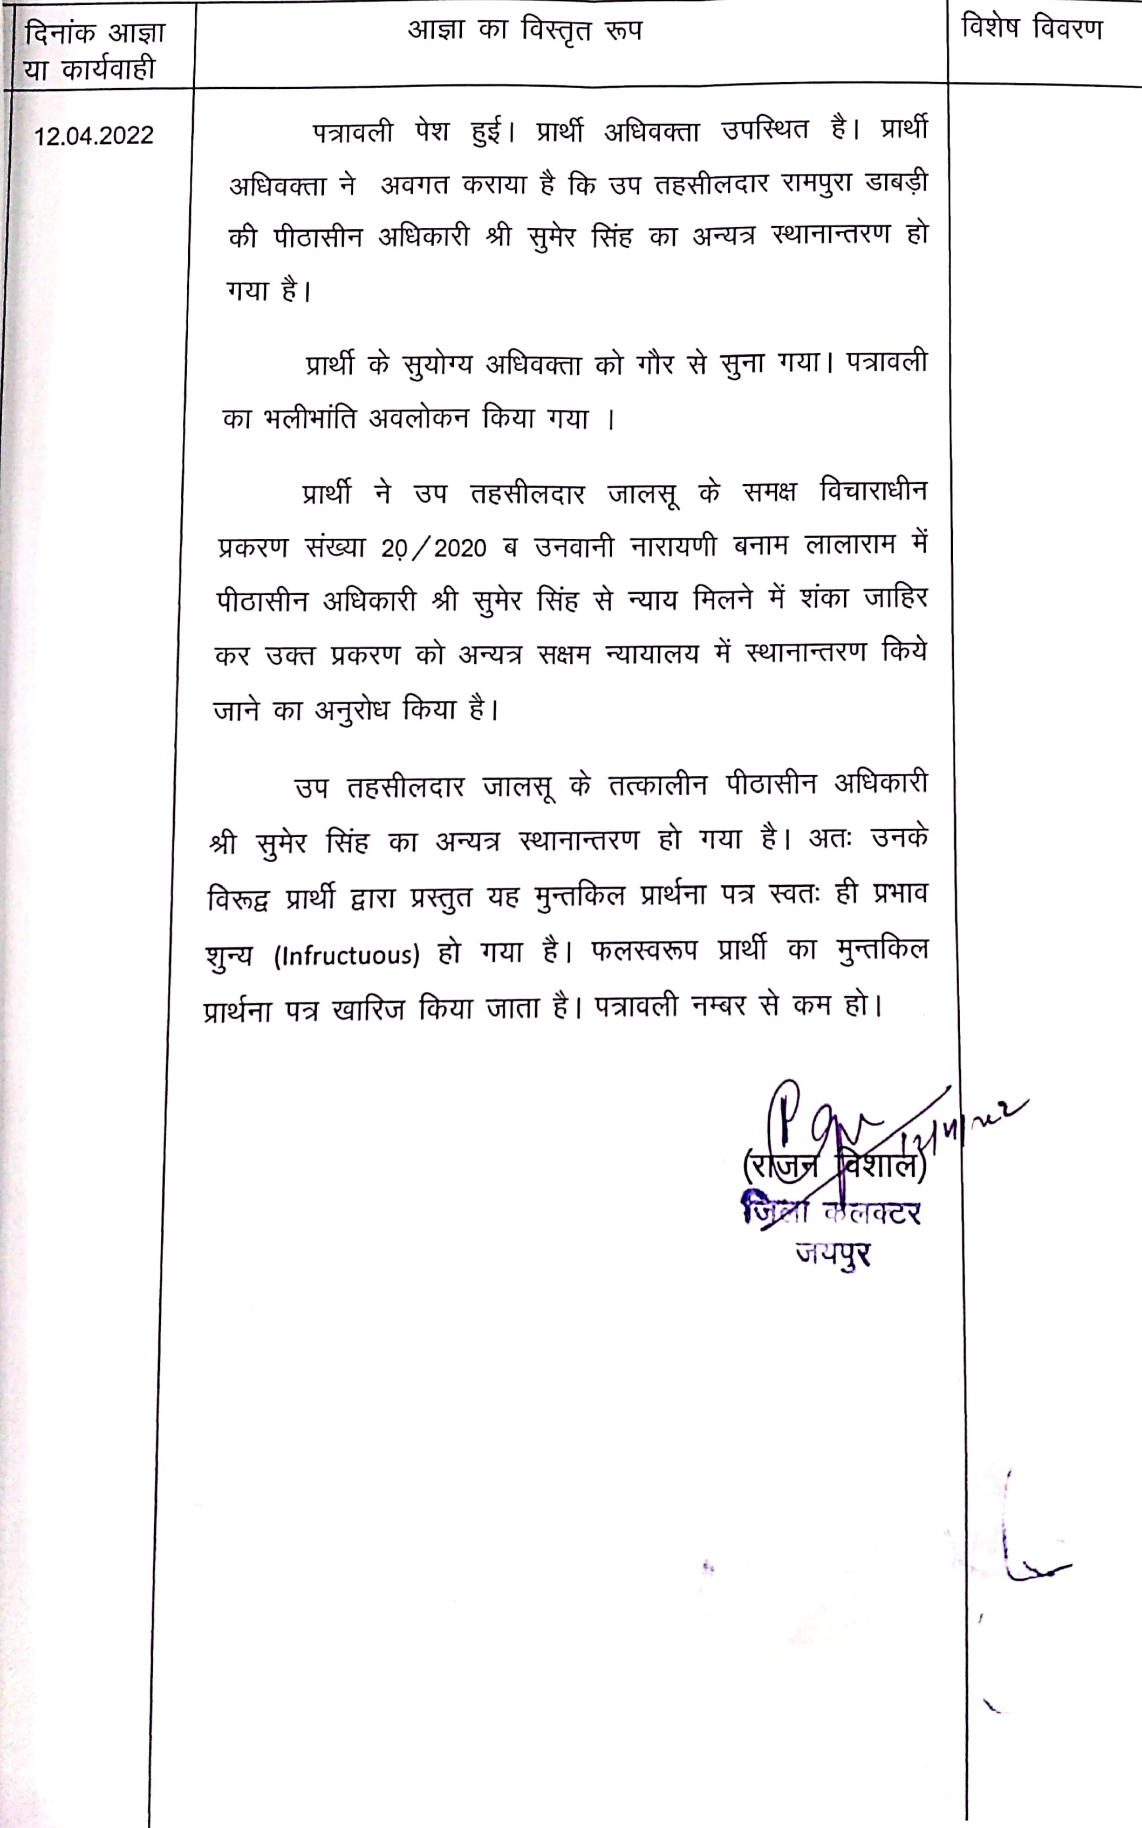 दिनांक आज्ञा
या कार्यवाही
आज्ञा का विस्तृत रूप
विशेष विवरण
12.04.2022
पत्रावली पेश हुई। प्रार्थी अधिवक्ता उपस्थित है। प्रार्थी
अधिवक्ता ने अवगत कराया है कि उप तहसीलदार रामपुरा डाबड़ी
की पीठासीन अधिकारी श्री सुमेर सिंह का अन्यत्र स्थानान्तरण हो
गया है।
प्रार्थी के सुयोग्य अधिवक्ता को गौर से सुना गया। पत्रावली
का भलीभांति अवलोकन किया गया ।
प्रार्थी ने उप तहसीलदार जालसू के समक्ष विचाराधीन
प्रकरण संख्या 20/2020 ब उनवानी नारायणी बनाम लालाराम में
पीठासीन अधिकारी श्री सुमेर सिंह से न्याय मिलने में शंका जाहिर
कर उक्त प्रकरण को अन्यत्र सक्षम न्यायालय में स्थानान्तरण किये
जाने का अनुरोध किया है।
उप तहसीलदार जालसू के तत्कालीन पीठासीन अधिकारी
श्री सुमेर सिंह का अन्यत्र स्थानान्तरण हो गया है। अतः उनके
विरूद्व प्रार्थी द्वारा प्रस्तुत यह मुन्तकिल प्रार्थना पत्र स्वतः ही प्रभाव
शुन्य (Infructuous) हो गया है। फलस्वरूप प्रार्थी का मुन्तकिल
प्रार्थना पत्र खारिज किया जाता है। पत्रावली नम्बर से कम हो।
(राजन विशाल)
जिला कलक्टर
जयपुर